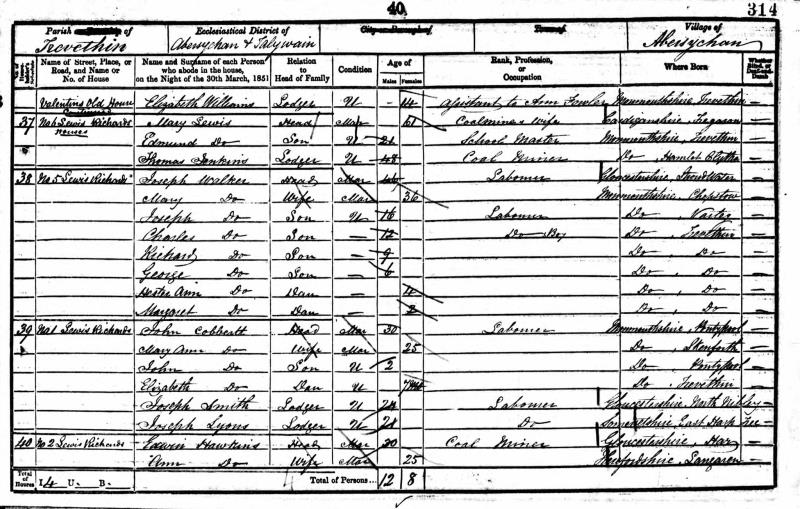 40 314
Parish of Ecclesiastical District of Village of
Trevethin Abersychan & Talywain Abersychan
Name of Street, Place, or Road, and Name or No. of House
Name and Surname of each Person who abode in the house, on the Night of the 30th March, 1851
Relation to Head of Family
Condition
Age of
Males Females
Rank, Profession, or Occupation
Where Born
Whether Blind, or Deaf-and-Dumb
Valentins Old House Elizabeth Williams Lodger U - 14 Assistant to Monmouthshire, Trevethin —
37 No 6 Lewis Richards houses Mary Lewis Head Mar 61 Coalminers wife Cardiganshire —
Edmund Do Son U 21 School Master Monmouthshire, Trevethin —
Thomas Jenkins Lodger U 48 Coal Miner Do, Hamlet —
38 No 5 Lewis Richards Joseph Walker Head Mar Labourer Gloucestershire, Stroud Water —
Mary Do Wife Mar 36 Monmouthshire, Chepstow —
Joseph Do Son U 16 Labourer Do —
Charles Do Son — 12 Do Boy Do, Trevethin —
Richard Do Son — 9 Do, Do —
George Do Son — 6 Do, Do —
Hester Ann Do Dau — 4 Do, Do —
Margaret Do Dau — 2 Do, Do —
39 No 1 Lewis Richards John Cobbertt Head Mar 30 Labourer Monmouthshire, Pontypool —
Mary Ann Do Wife Mar 25 Do, Skenfrith —
John Do Son U 2 Do, Pontypool —
Elizabeth Do Dau U Do, Trevethin —
Joseph Smith Lodger U 24 Labourer Gloucestershire, North Nibley —
Joseph Lyons Lodger U Do Somersetshire, East —
40 No 2 Lewis Richards Edwin Hawkins Head Mar 30 Coal Miner Gloucestershire —
Ann Do Wife Mar 25 Herefordshire —
Total of Houses I 4 U B Total of Persons... 12 8